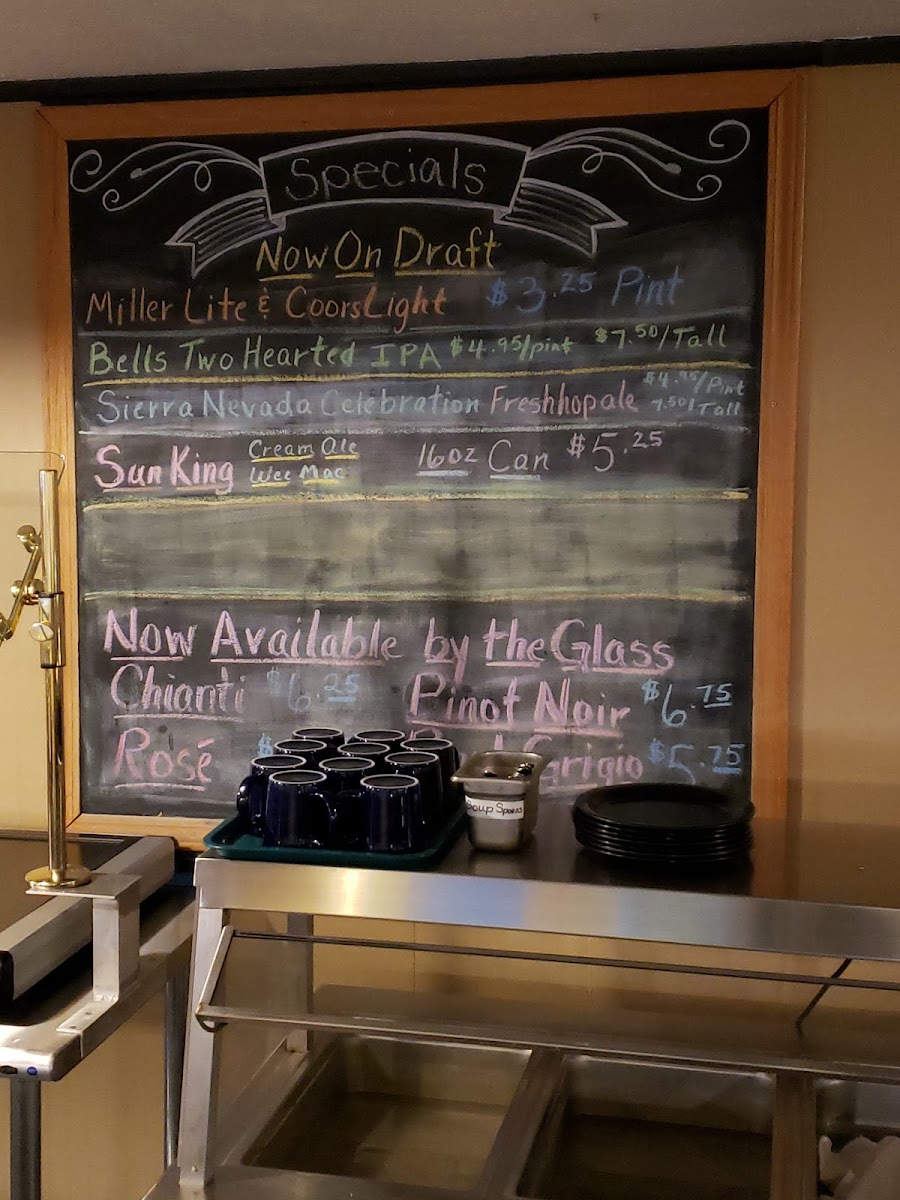 Specials
Now On Draft
Miller Lite & Coors Light $3.25 Pint
Bells Two Hearted IPA $4.95/pint $7.50/Tall
Sierra Nevada Celebration Freshhopale $4.95/Pint
7.50/Tall
Sun King Cream Ale 16oz Can $5.25
Wee Mac
Now Available by the Glass
Chianti $6.25 Pinot Noir $6.75
Rosé $ Grigio $5.75
Soup Spoons